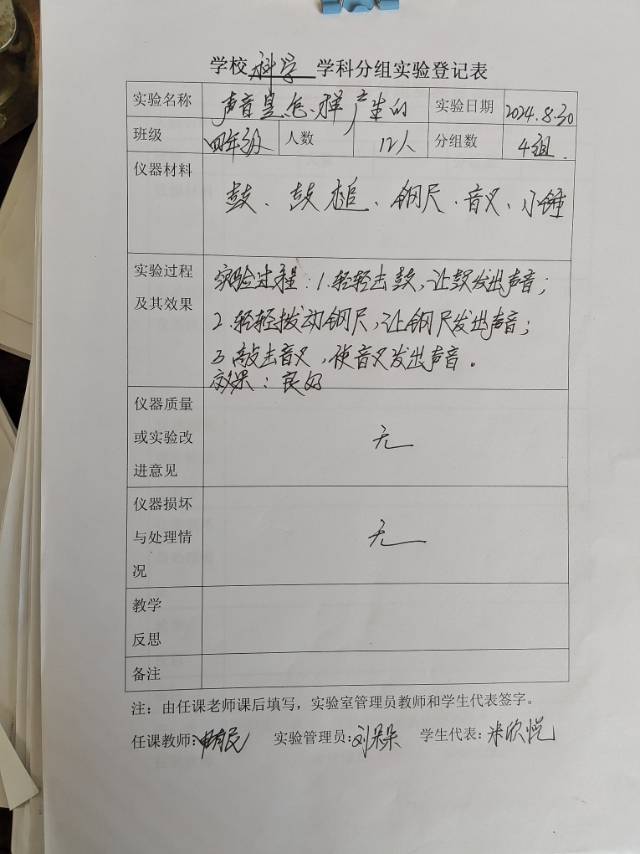 学校 科学 学科分组实验登记表
实验名称 声音是怎样产生的 实验日期 2024.8.30
班级 四年级 人数 12人 分组数 4组.
仪器材料 鼓、鼓槌、钢尺、音叉、小锤
实验过程 实验过程:1.轻轻击鼓,让鼓发出声音;
及其效果 2.轻轻拨动钢尺,让钢尺发出声音;
3.敲击音叉,使音叉发出声音。
效果:良好
仪器质量
或实验改 无
进意见
仪器损坏
与处理情 无
况
教学
反思
备注
注:由任课老师课后填写,实验室管理员教师和学生代表签字。
任课教师: 实验管理员:刘朵朵 学生代表:米欣悦